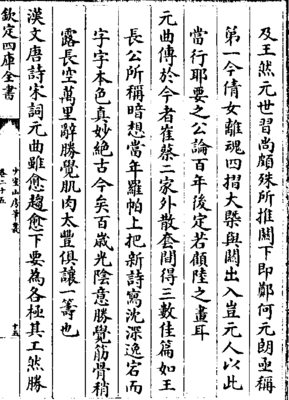 及王然元世習尚頗殊所推關下即鄭何元朗亟稱
第一今倩女離魂四摺大槩與關出入豈元人以此
當行耶要之公論百年後定若顧陸之畫耳
元曲傳於今者崔蔡二家外散套間得三數佳篇如王
長公所稱暗想當年羅帕上把新詩寫沈深逸宕而
字字本色真妙絕古今矣百歲光陰意勝覺筋骨稍
露長空萬里辭勝覺肌肉太豐俱讓一籌也
漢文唐詩宋詞元曲雖愈趨愈下要為各極其工然勝
欽定四庫全書
少室山房筆叢
卷二十五
十五